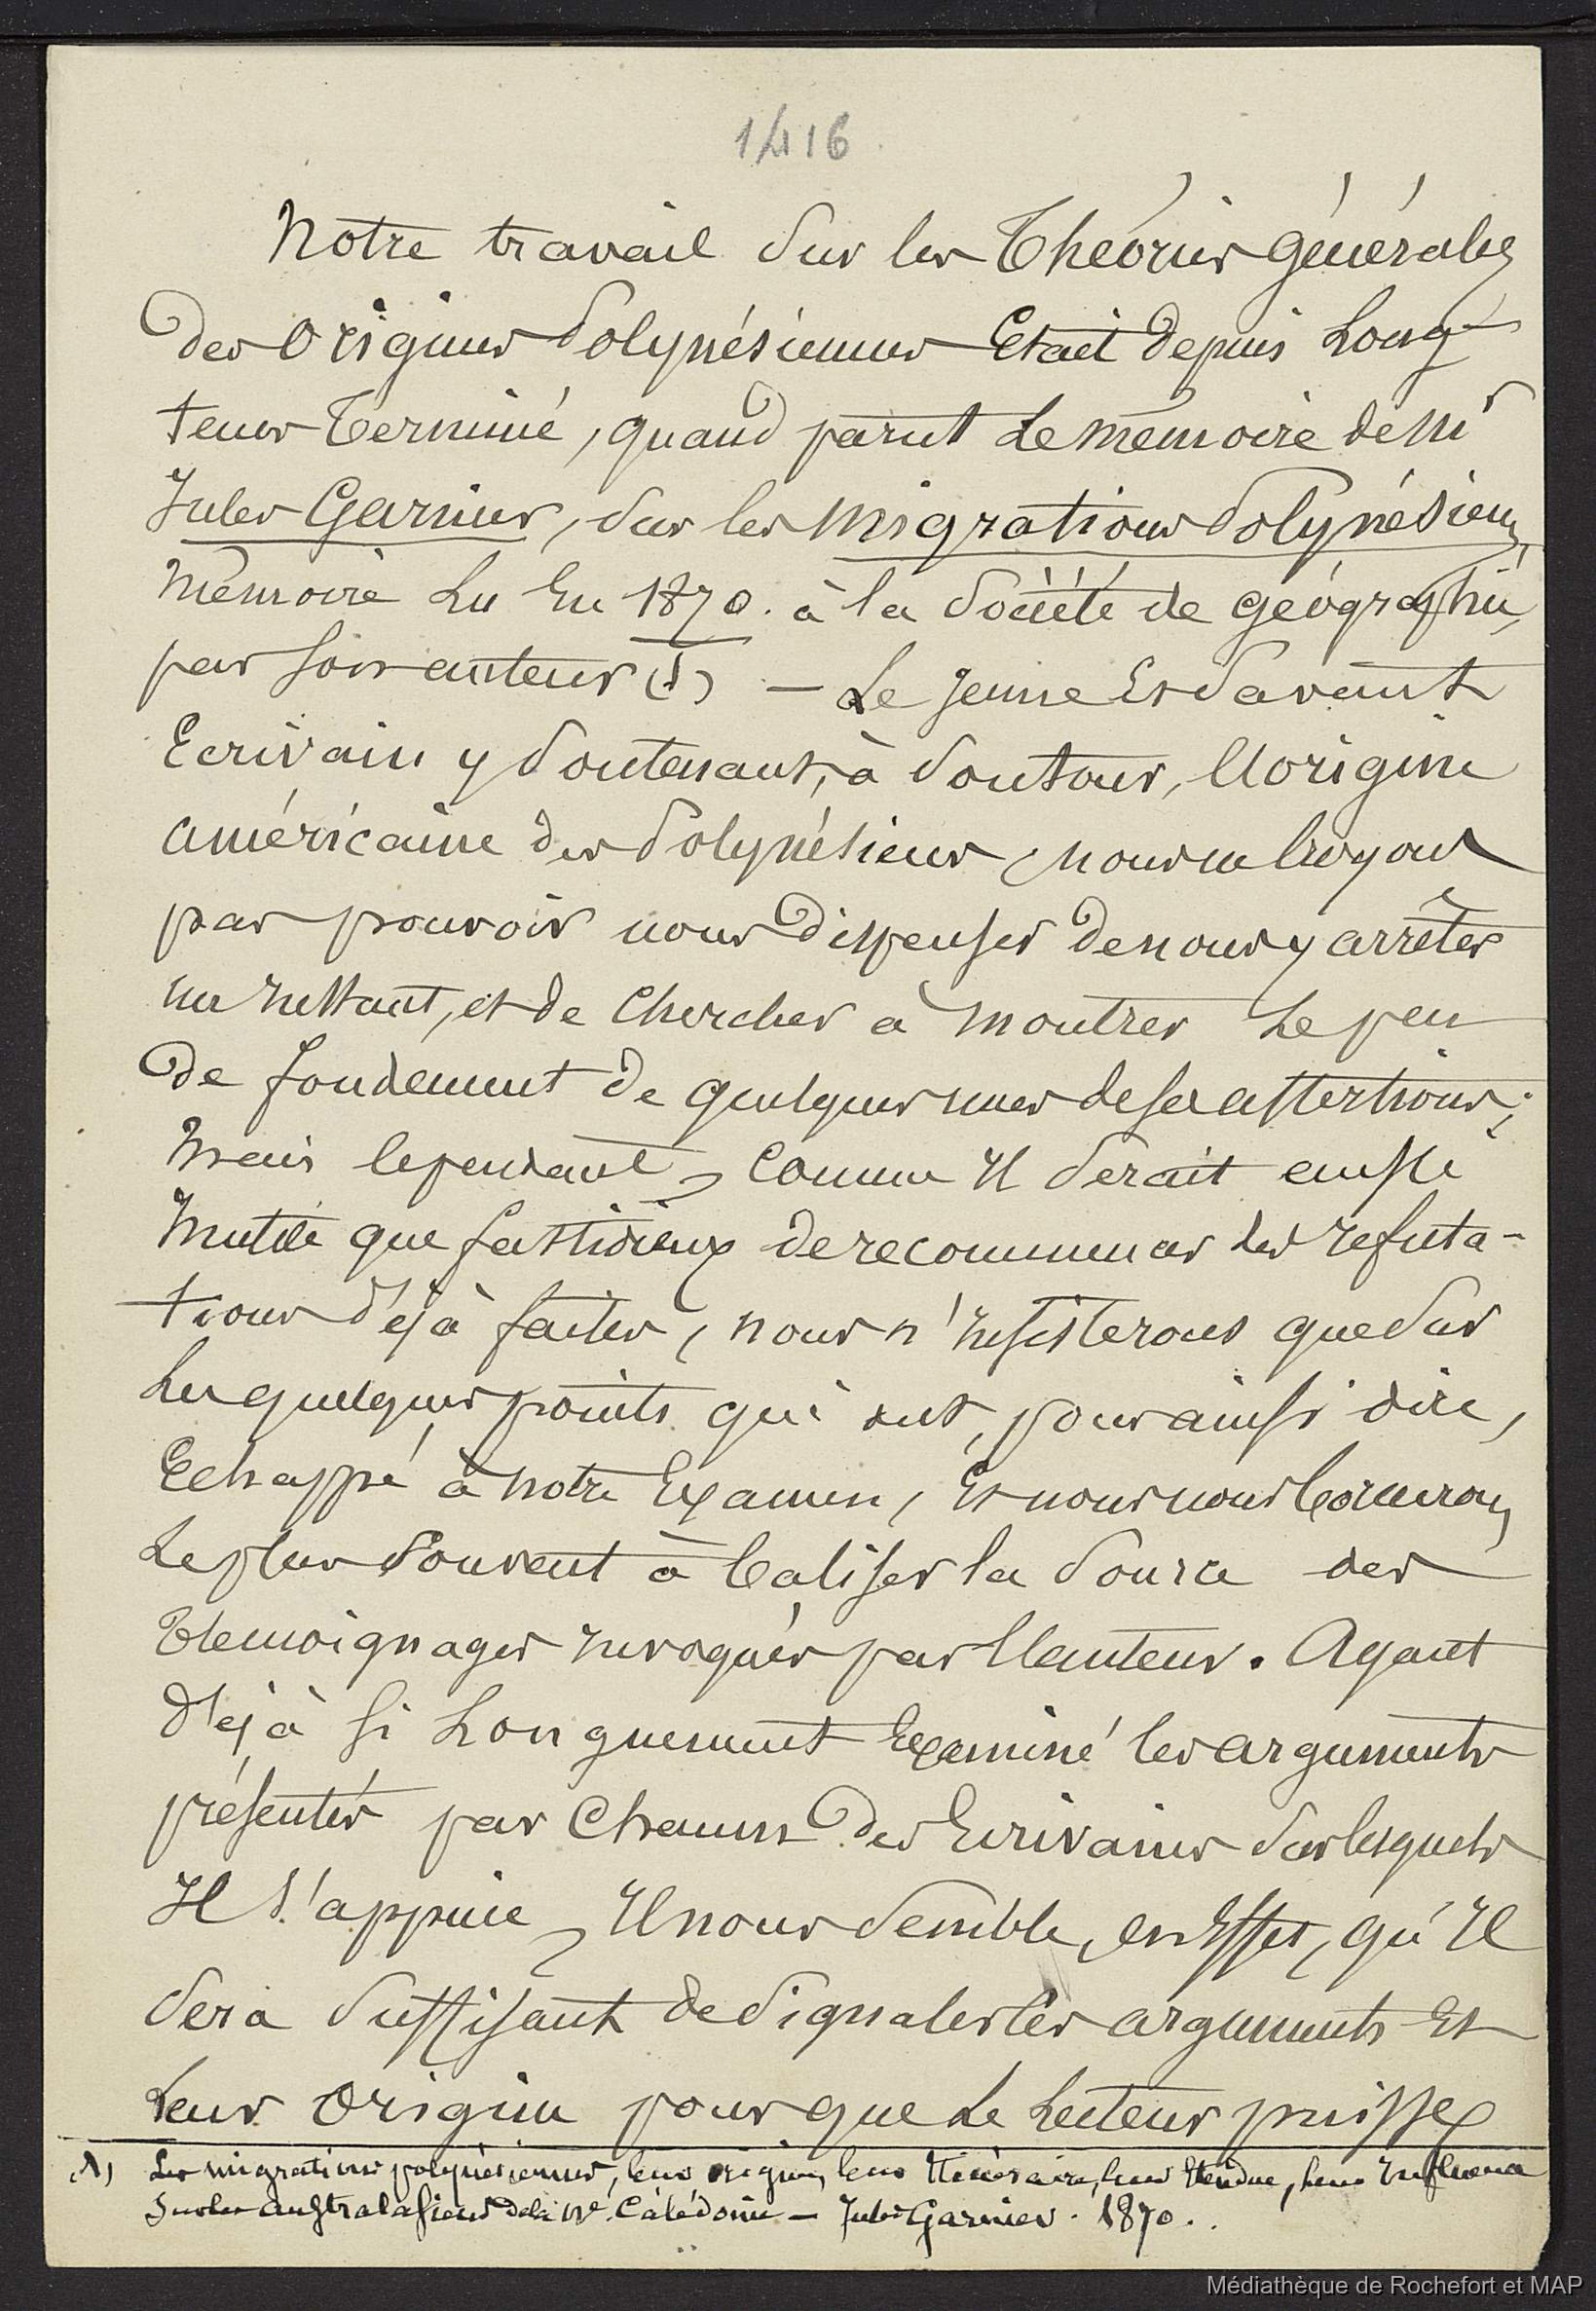 1416
Notre travail sur les Théories générales
des Origines Polynésiennes Etait depuis Long-
tems Terminé, quand parut Le mémoire de Mr
Jules Garnier, sur les Migrations Polynésiens,
Mémoire Lu En 1870. à la Société de géographie,
par son auteur (1) — Le Jeune Et Savant
Ecrivain y soutenant, à son tour, L'origine
américaine des Polynésiens, nous ne Croyons
pas pouvoir nous Dispenser De nous y arrêter
un Instant, et de Chercher à Montrer Le peu
De fondement de quelques unes de ses assertions;
Mais Cependant, Comme Il serait aussi
Inutile que fastidieux de recommencer les réfuta-
tions déjà faites, nous n'Insisterons que sur
Les quelques points qui ont, pour ainsi dire,
Echappé à notre Examen, Et nous nous bornerons
Le plus souvent à la source des
Témoignages Invoqués par L'auteur. Ayant
Déjà si Longuement Examiné les arguments
présentés par Chacun Des Ecrivains sur lesquels
Il s'appuie, Il nous semble, en Effet, qu'Il
sera suffisant de signaler les arguments Et
Leur Origine pour que Le Lecteur puisse
(1) Les migrations polynésiennes, leur origine, leur Itinéraire, leur Etendue, leur Influence
Sur les australasiens de la Nlle. Calédonie — Jules Garnier. 1870.
Médiathèque de Rochefort et MAP